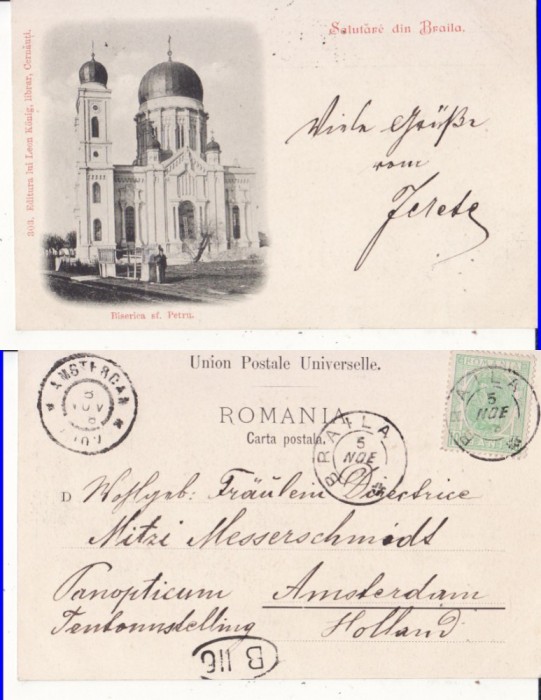 303. Editura lui Leon König, librar, Cernăuți.
Salutăre din Braila.
Viele Grüße
vom
Biserica sf. Petru.
Union Postale Universelle.
ROMANIA
Carta postala.
AMSTERDAM
BRAILA
5
NOE
BRAILA
5
NOE
D Wohlgeb: Fräulein Directrice
Mitzi Messerschmidt
Panopticum Amsterdam
Tentoonstelling Holland
B 116